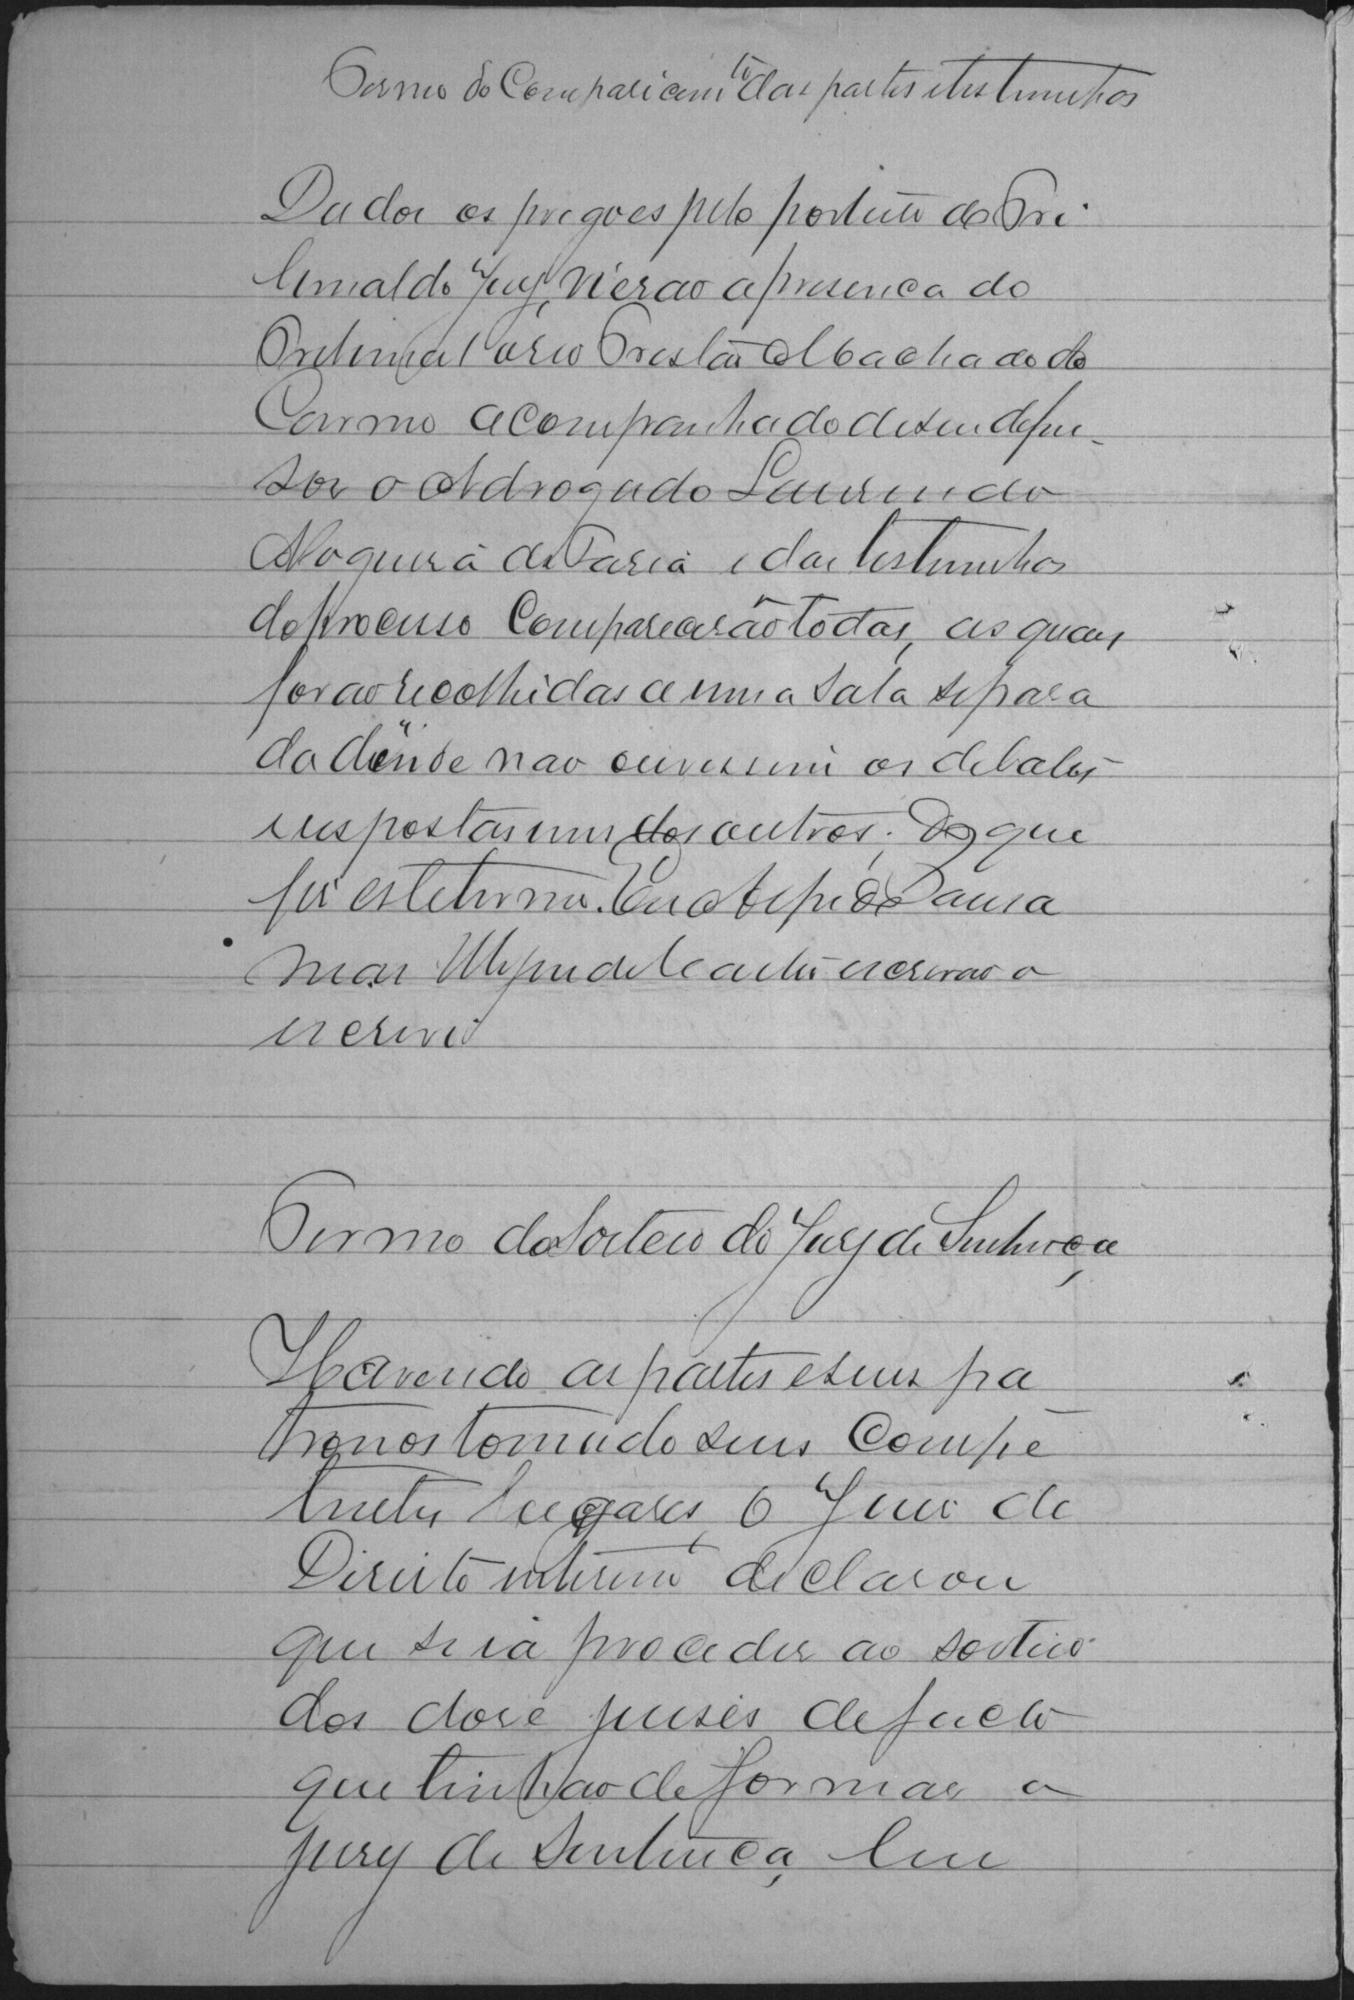 Termo do Comparicim.to das partes e testimunhos
Dados os pregoes pelo porteiro do Tri
bunal do Jury, vierao a presença do
Tribunal o reo Tristão Machado do
Carmo acompanhado de seu defen-
sor o Advogado Laurindo
Nogueira de Faria e das testimunhas
do processo Comparecerão todas, as quaes
forao recolhidas a uma sala separa
da d'onde nao ouvissem os debates
e respostas uns dos outros. Do que
fiz este termo. Eu
mar escrivao o
escrivi
Termo do Sorteio do Jury de Sentença
Havendo as partes e seus pa
tronos tomado seus Compe
tentes lugares, o Juiz de
Direito interino declarou
que se ia proceder ao sorteio
dos dose juises de facto
que tinhao de formar o
jury de Sentença, em